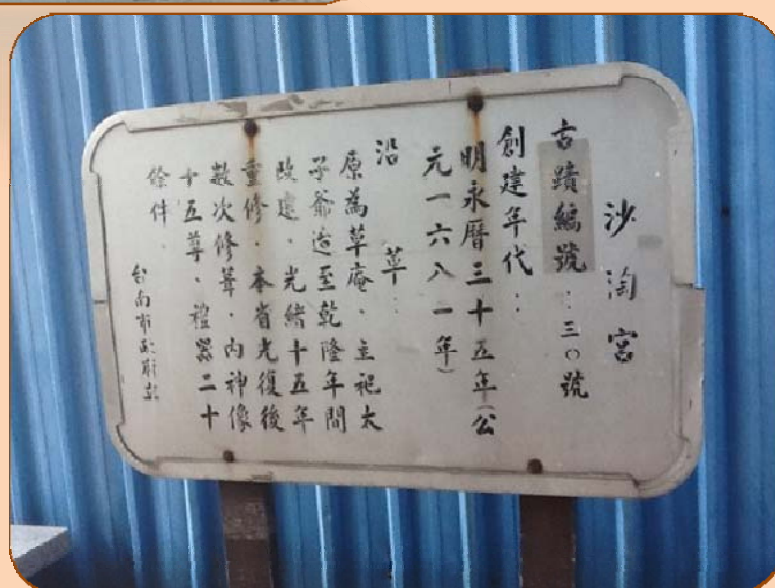 沙淘宮
古蹟編號：三〇號
創建年代：
明永曆三十五年（公
元一六八一年）
沿革：
原為草庵、主祀太
子爺迨至乾隆年間
改建、光緒十五年
重修、本省光復後
數次修葺、內神像
十五尊、禮器二十
餘件、
台南市政府立